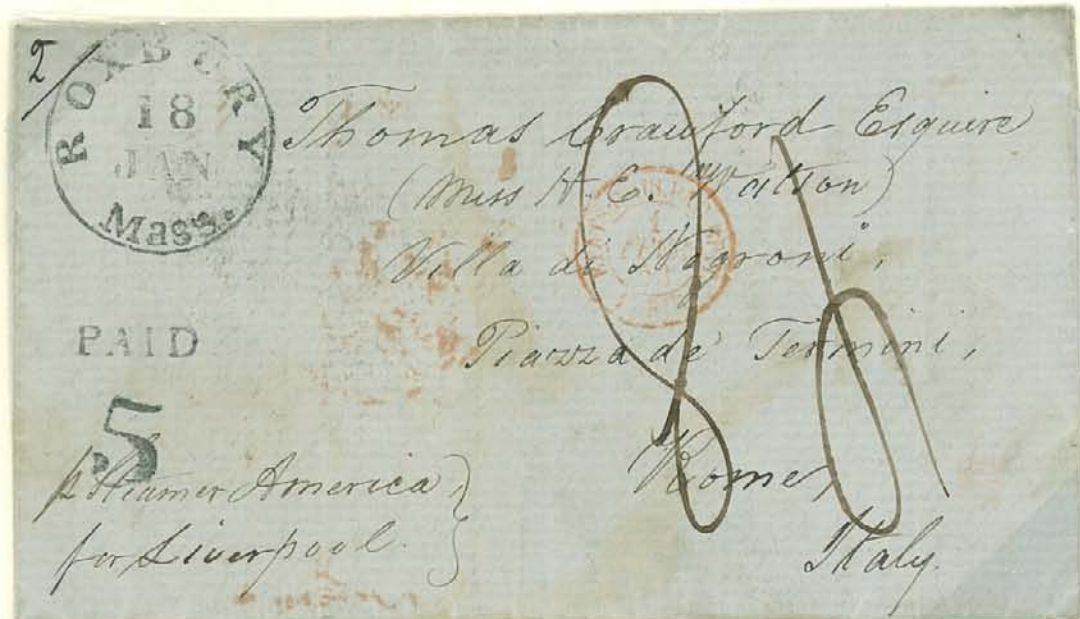 2/
ROXBURY
18
JAN
Mass.
Thomas Crawford Esquire
(Miss H. E. Watson)
Villa di Negroni,
Piazza de' Termini,
Rome,
Italy.
PAID
5
p Steamer America,
for Liverpool.
8